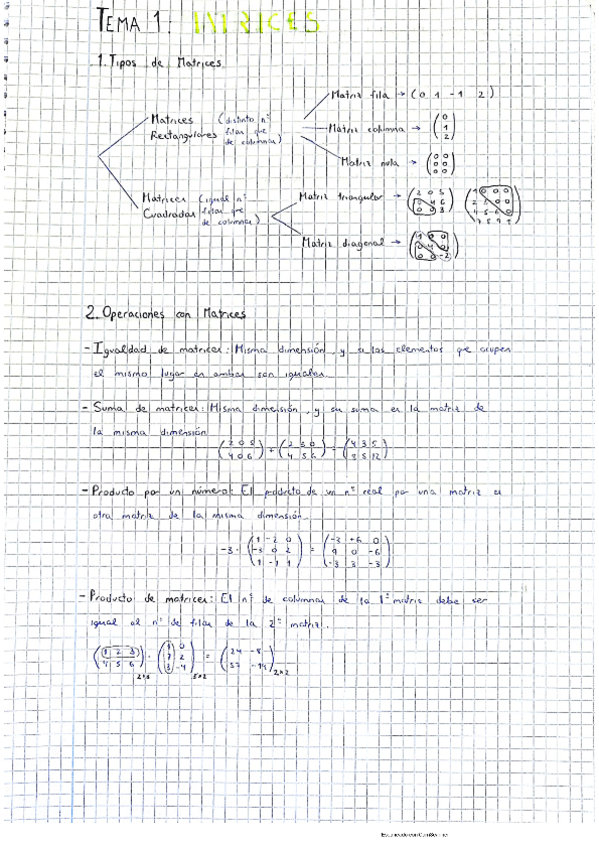 TEMA 1: MATRICES
1. Tipos de Matrices
Matrices Rectangulares (distinto nº filas que de columnas)
Matriz fila → (0 1 -1 2)
Matriz columna → (0 1 2)
Matriz nula → (0 0 0 0 0 0)
Matrices Cuadradas (igual nº filas que de columnas)
Matriz triangular →
Matriz diagonal →
2. Operaciones con Matrices
- Igualdad de matrices: Misma dimensión, y si los elementos que ocupen
el mismo lugar en ambas son iguales.
- Suma de matrices: Misma dimensión, y su suma es la matriz de
la misma dimensión
(2 0 5) + (2 3 0) = (4 3 5)
(4 0 6) (4 5 6)
- Producto por un número: El producto de un nº real por una matriz es
otra matriz de la misma dimensión.
-3 · (1 -2 0) = (-3 +6 0)
(-3 0 2) (9 0 -6)
(1 -1 1) (-3 3 -3)
- Producto de matrices: El nº de columnas de la 1ª matriz debe ser
igual al nº de filas de la 2ª matriz.
(1 2 3)
(4 5 6)
2x2
Escaneado con CamScanner